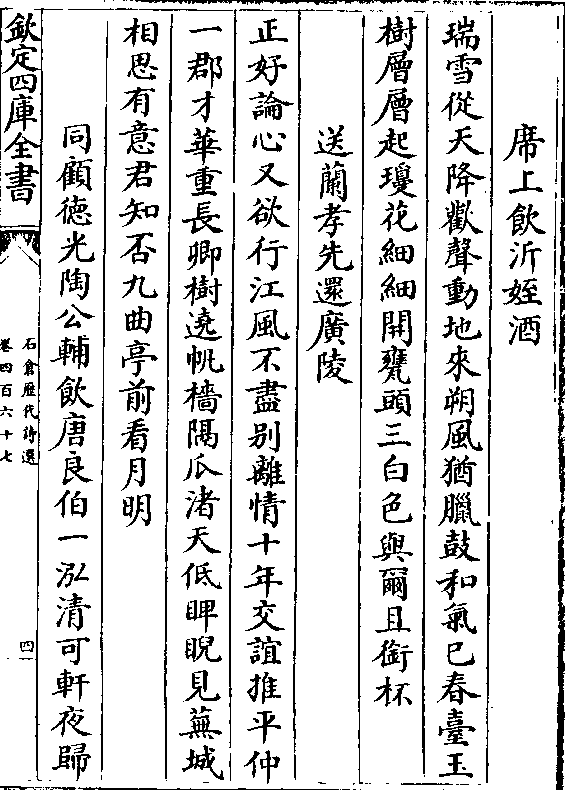 席上飲沂姪酒
瑞雪從天降歡聲動地來朔風猶臘鼓和氣已春臺玉
樹層層起瓊花細細開甕頭三白色與爾且銜杯
送蘭孝先還廣陵
正好論心又欲行江風不盡別離情十年交誼推平仲
一郡才華重長卿樹遶帆檣隔瓜渚天低睥睨見蕪城
相思有意君知否九曲亭前看月明
同顧德光陶公輔飲唐良伯一泓清可軒夜歸
欽定四庫全書
石倉歷代詩選
卷四百六十七
四